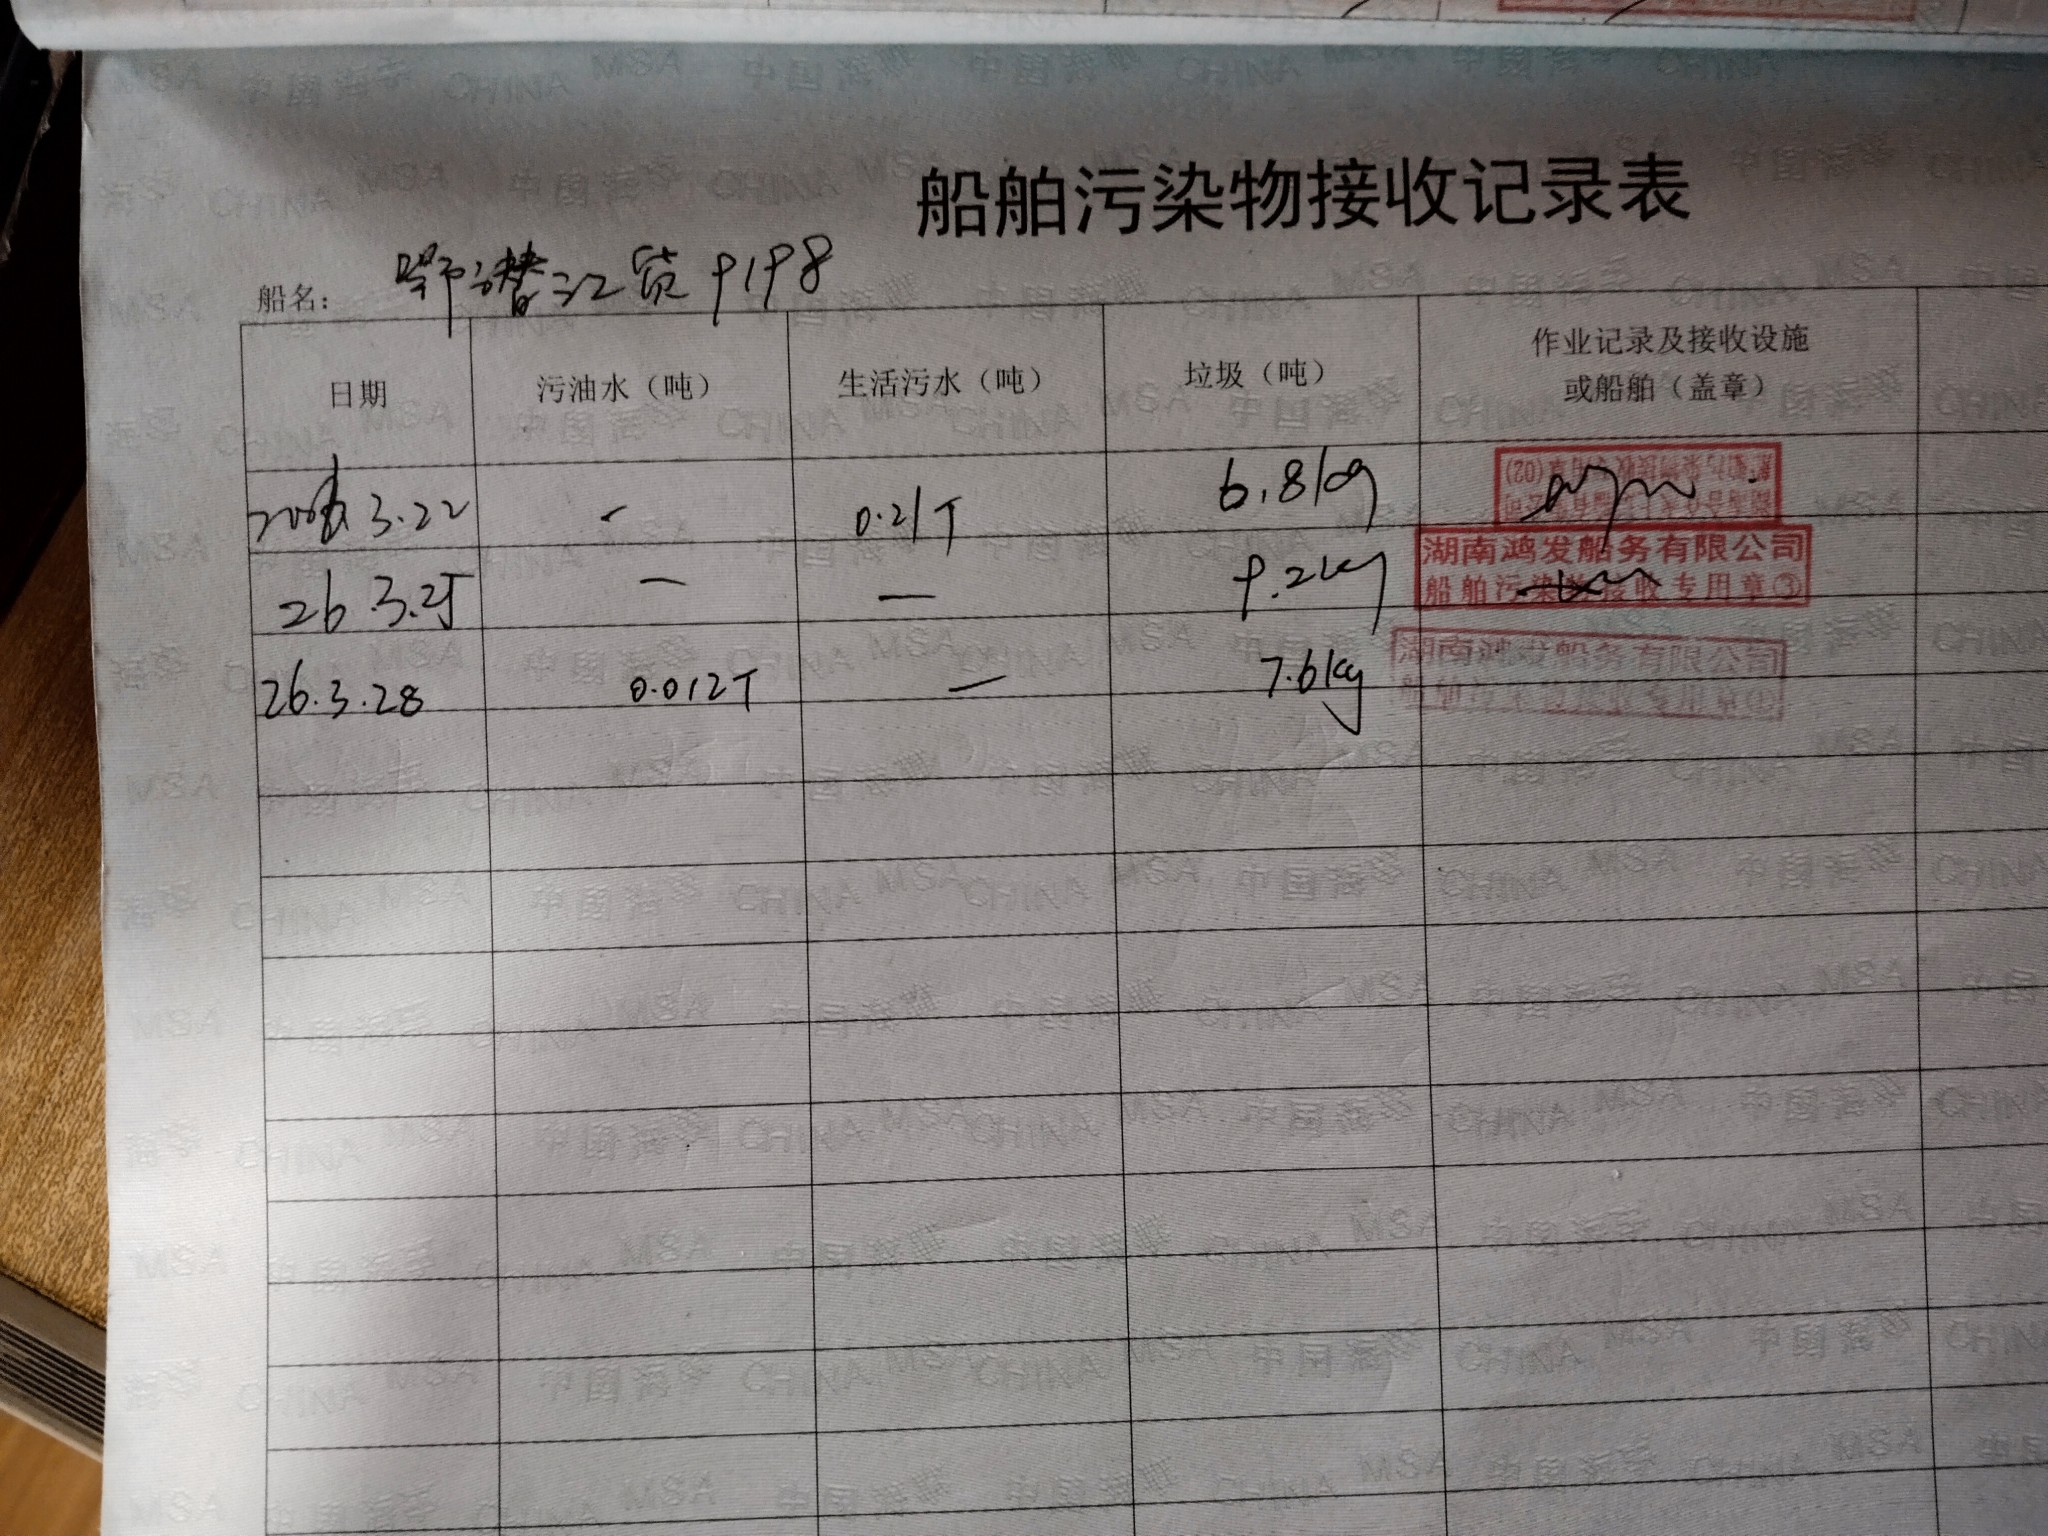 船舶污染物接收记录表
船名: 鄂潜江货9198
日期 污油水（吨） 生活污水（吨） 垃圾（吨） 作业记录及接收设施
或船舶（盖章）
3.22 - 0.21T 6.8kg
26.3.25 — — 9.2kg 湖南鸿发船务有限公司
船舶污染物接收专用章③
26.3.28 0.012T — 7.6kg 湖南鸿发船务有限公司
船舶污染物接收专用章①
中国海事 CHINA MSA